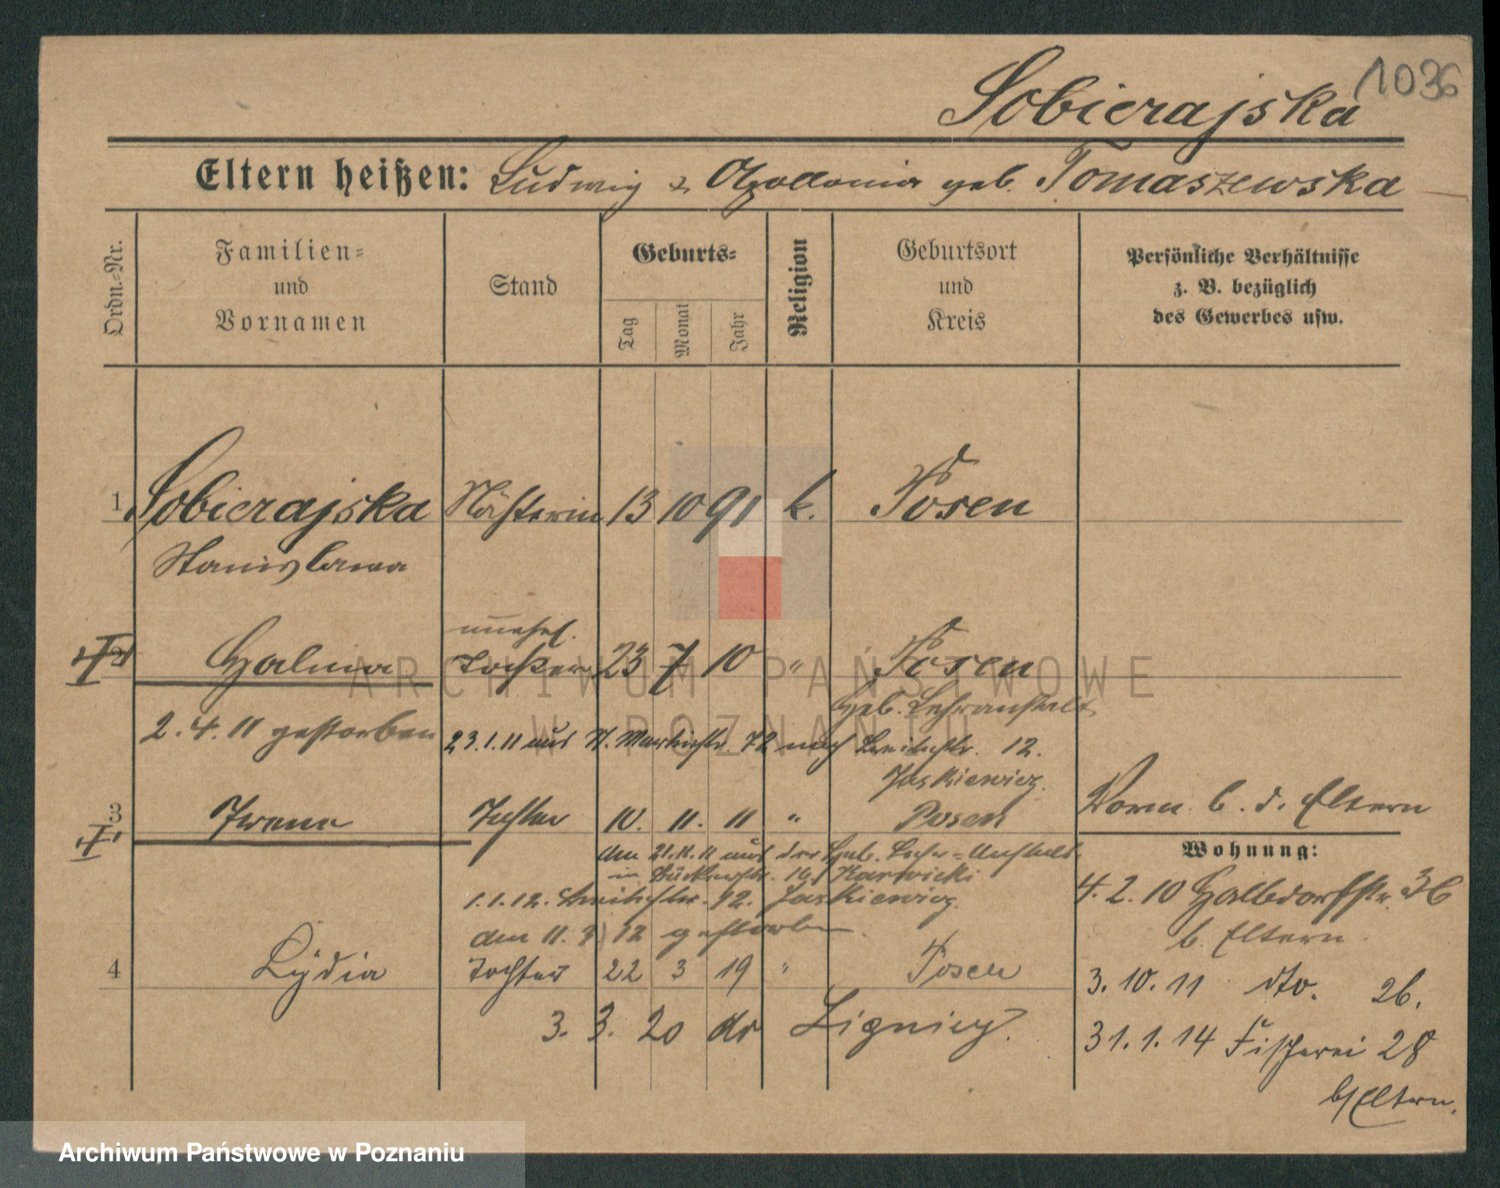 1036
Sobierajska
Eltern heißen: Ludwig & Apollonia geb. Tomaszewska
Ordn.=Nr.
Familien=
und
Vornamen
Stand
Geburts=
Tag
Monat
Jahr
Religion
Geburtsort
und
Kreis
Persönliche Verhältnisse
z. B. bezüglich
des Gewerbes usw.
1 Sobierajska Näherin 13 10 91 k. Posen
Stanislawa
unehel.
2 Halina Tochter 23 7 10 " Posen
Geb. Lehranstalt
2.4.11 gestorben 23.1.11 aus St. Martinstr. 72 nach Breitestr. 12.
Jaskiewicz.
3 Irena Tochter 10. 11. 11 " Posen Vorm. b. d. Eltern
Wohnung:
den 21.11.11 aus der Geb. Lehr=Anstalt
16 Karwicki
1.1.12. Breitestr. 12. Jaskiewicz.
4.2.10 Halbdorfstr. 36
den 11. 3. 12 gestorben
b. Eltern.
4 Lydia Tochter 22 3 19 " Posen
3.10.11 dto. 26.
3. 3. 20 do Lignicz.
31.1.14 Fischerei 28
b/Eltern.
ARCHIWUM PAŃSTWOWE
W POZNANIU
Archiwum Państwowe w Poznaniu